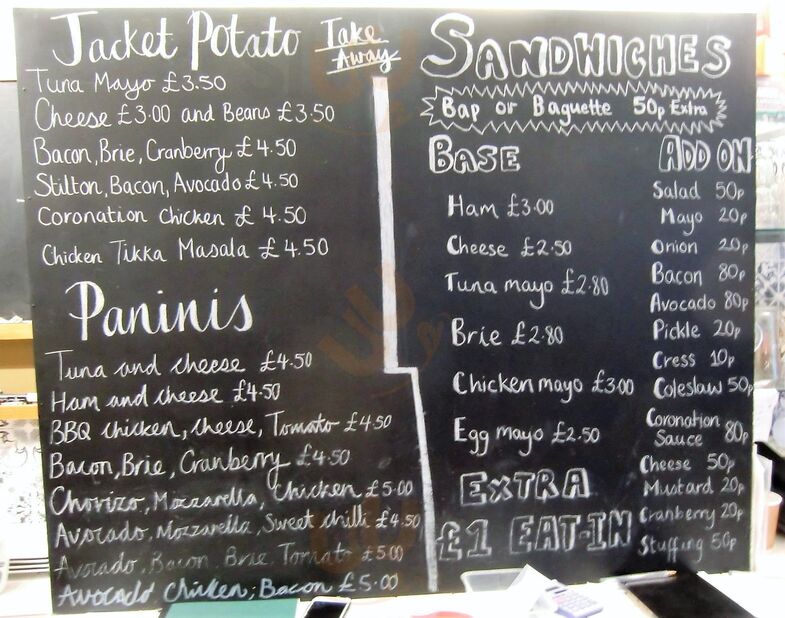 Jacket Potato
Take
Away
Tuna Mayo £3.50
Cheese £3.00 and Beans £3.50
Bacon, Brie, Cranberry £4.50
Stilton, Bacon, Avocado £4.50
Coronation Chicken £4.50
Chicken Tikka Masala £4.50
Paninis
Tuna and cheese £4.50
Ham and cheese £4.50
BBQ chicken, cheese, Tomato £4.50
Bacon, Brie, Cranberry £4.50
Chorizo, Mozzarella, Chicken £5.00
Avocado, Mozzarella, Sweet chilli £4.50
Avocado, Bacon, Brie, Tomato £5.00
Avocado Chicken, Bacon £5.00
SANDWICHES
Bap or Baguette 50p Extra
BASE
Ham £3.00
Cheese £2.50
Tuna mayo £2.80
Brie £2.80
Chicken mayo £3.00
Egg mayo £2.50
EXTRA
£1 EAT-IN
ADD ON
Salad 50p
Mayo 20p
Onion 20p
Bacon 80p
Avocado 80p
Pickle 20p
Cress 10p
Coleslaw 50p
Coronation
Sauce 80p
Cheese 50p
Mustard 20p
Cranberry 20p
Stuffing 50p